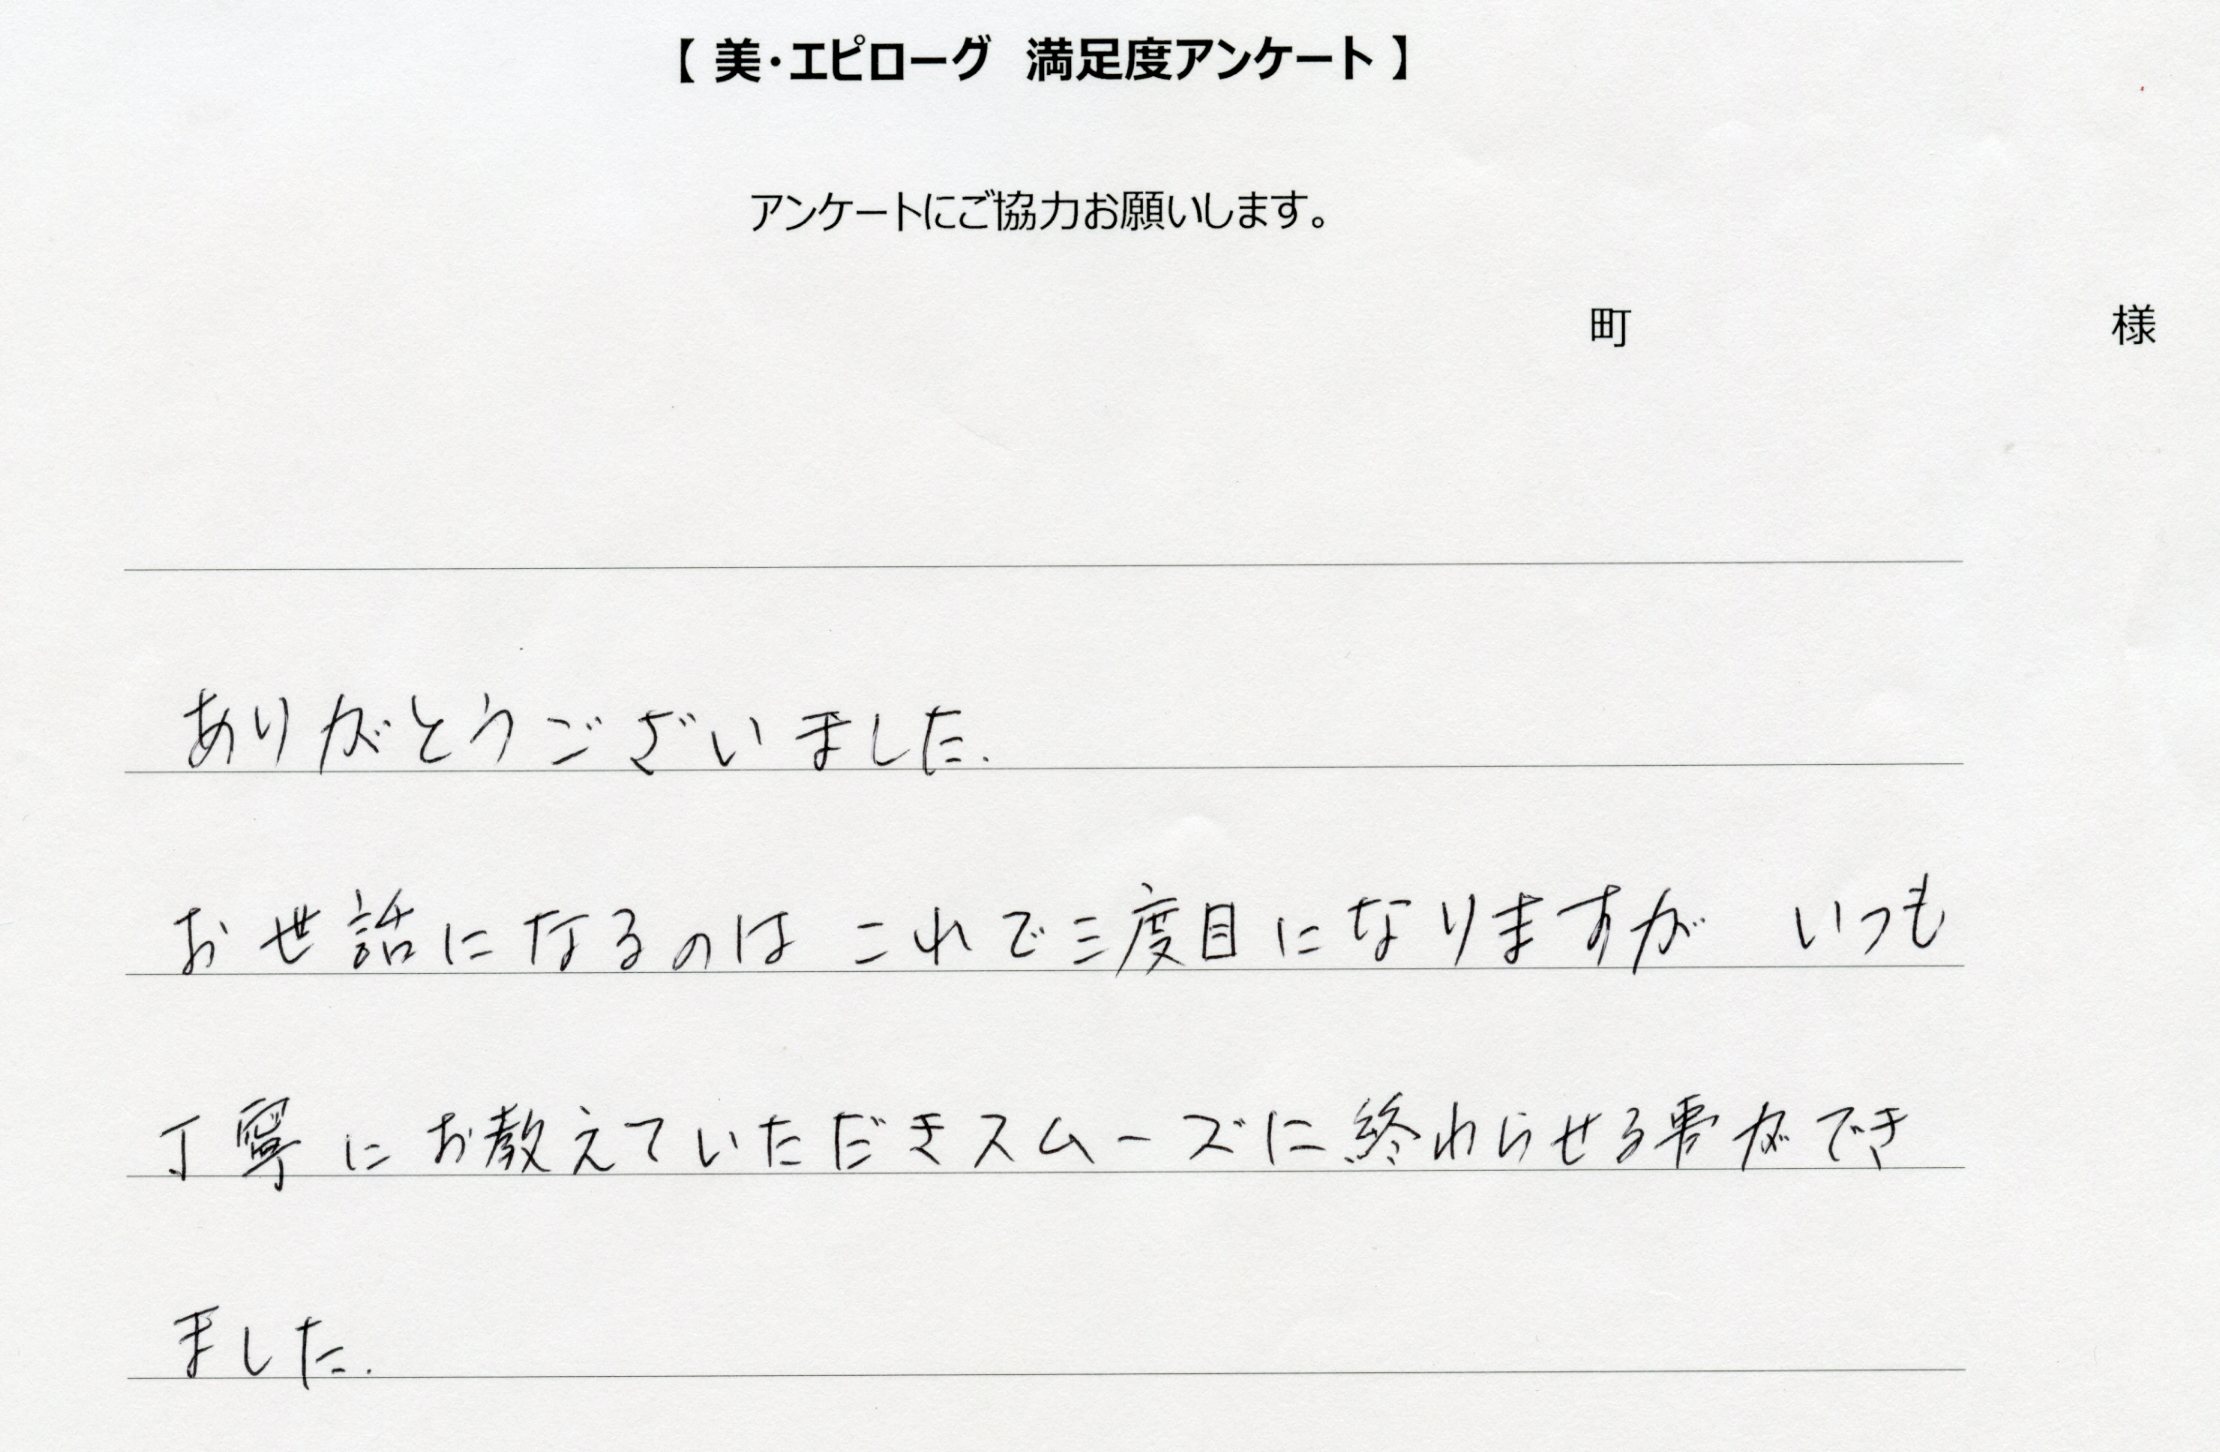 【 美・エピローグ　満足度アンケート 】
アンケートにご協力お願いします。
町　様
ありがとうございました.
お世話になるのは これで三度目になりますが いつも
丁寧にお教えていただきスムーズに終わらせる事ができ
ました.